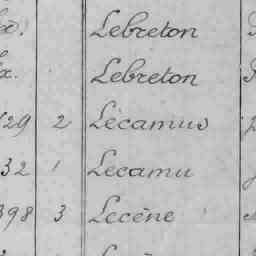 Lebreton
Lebreton
29 2 Lecamus
32 1 Lecamu
398 3 Lecène